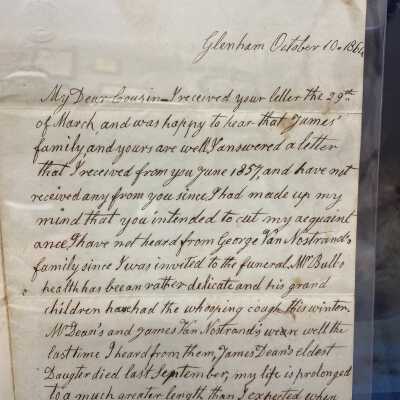 Glenham October 10. 186
My Dear Cousin I received your letter the 29th
of March and was happy to hear that James'
family and yours are well, I answered a letter
that I received from you June 1857, and have not
received any from you since, I had made up my
mind that you intended to cut my acquaint
ance, I have not heard from George Van Nostrand,s
family since I was invited to the funeral, Mr Bull,s
health has beean rather delicate and his grand
children have had the whooping cough this winter,
Mr Dean's and James Van Nostrand,s weare well the
last time I heard from them, James Dean's eldest
Daugter died last September, my life is prolonged
to a much greater length than I expected when